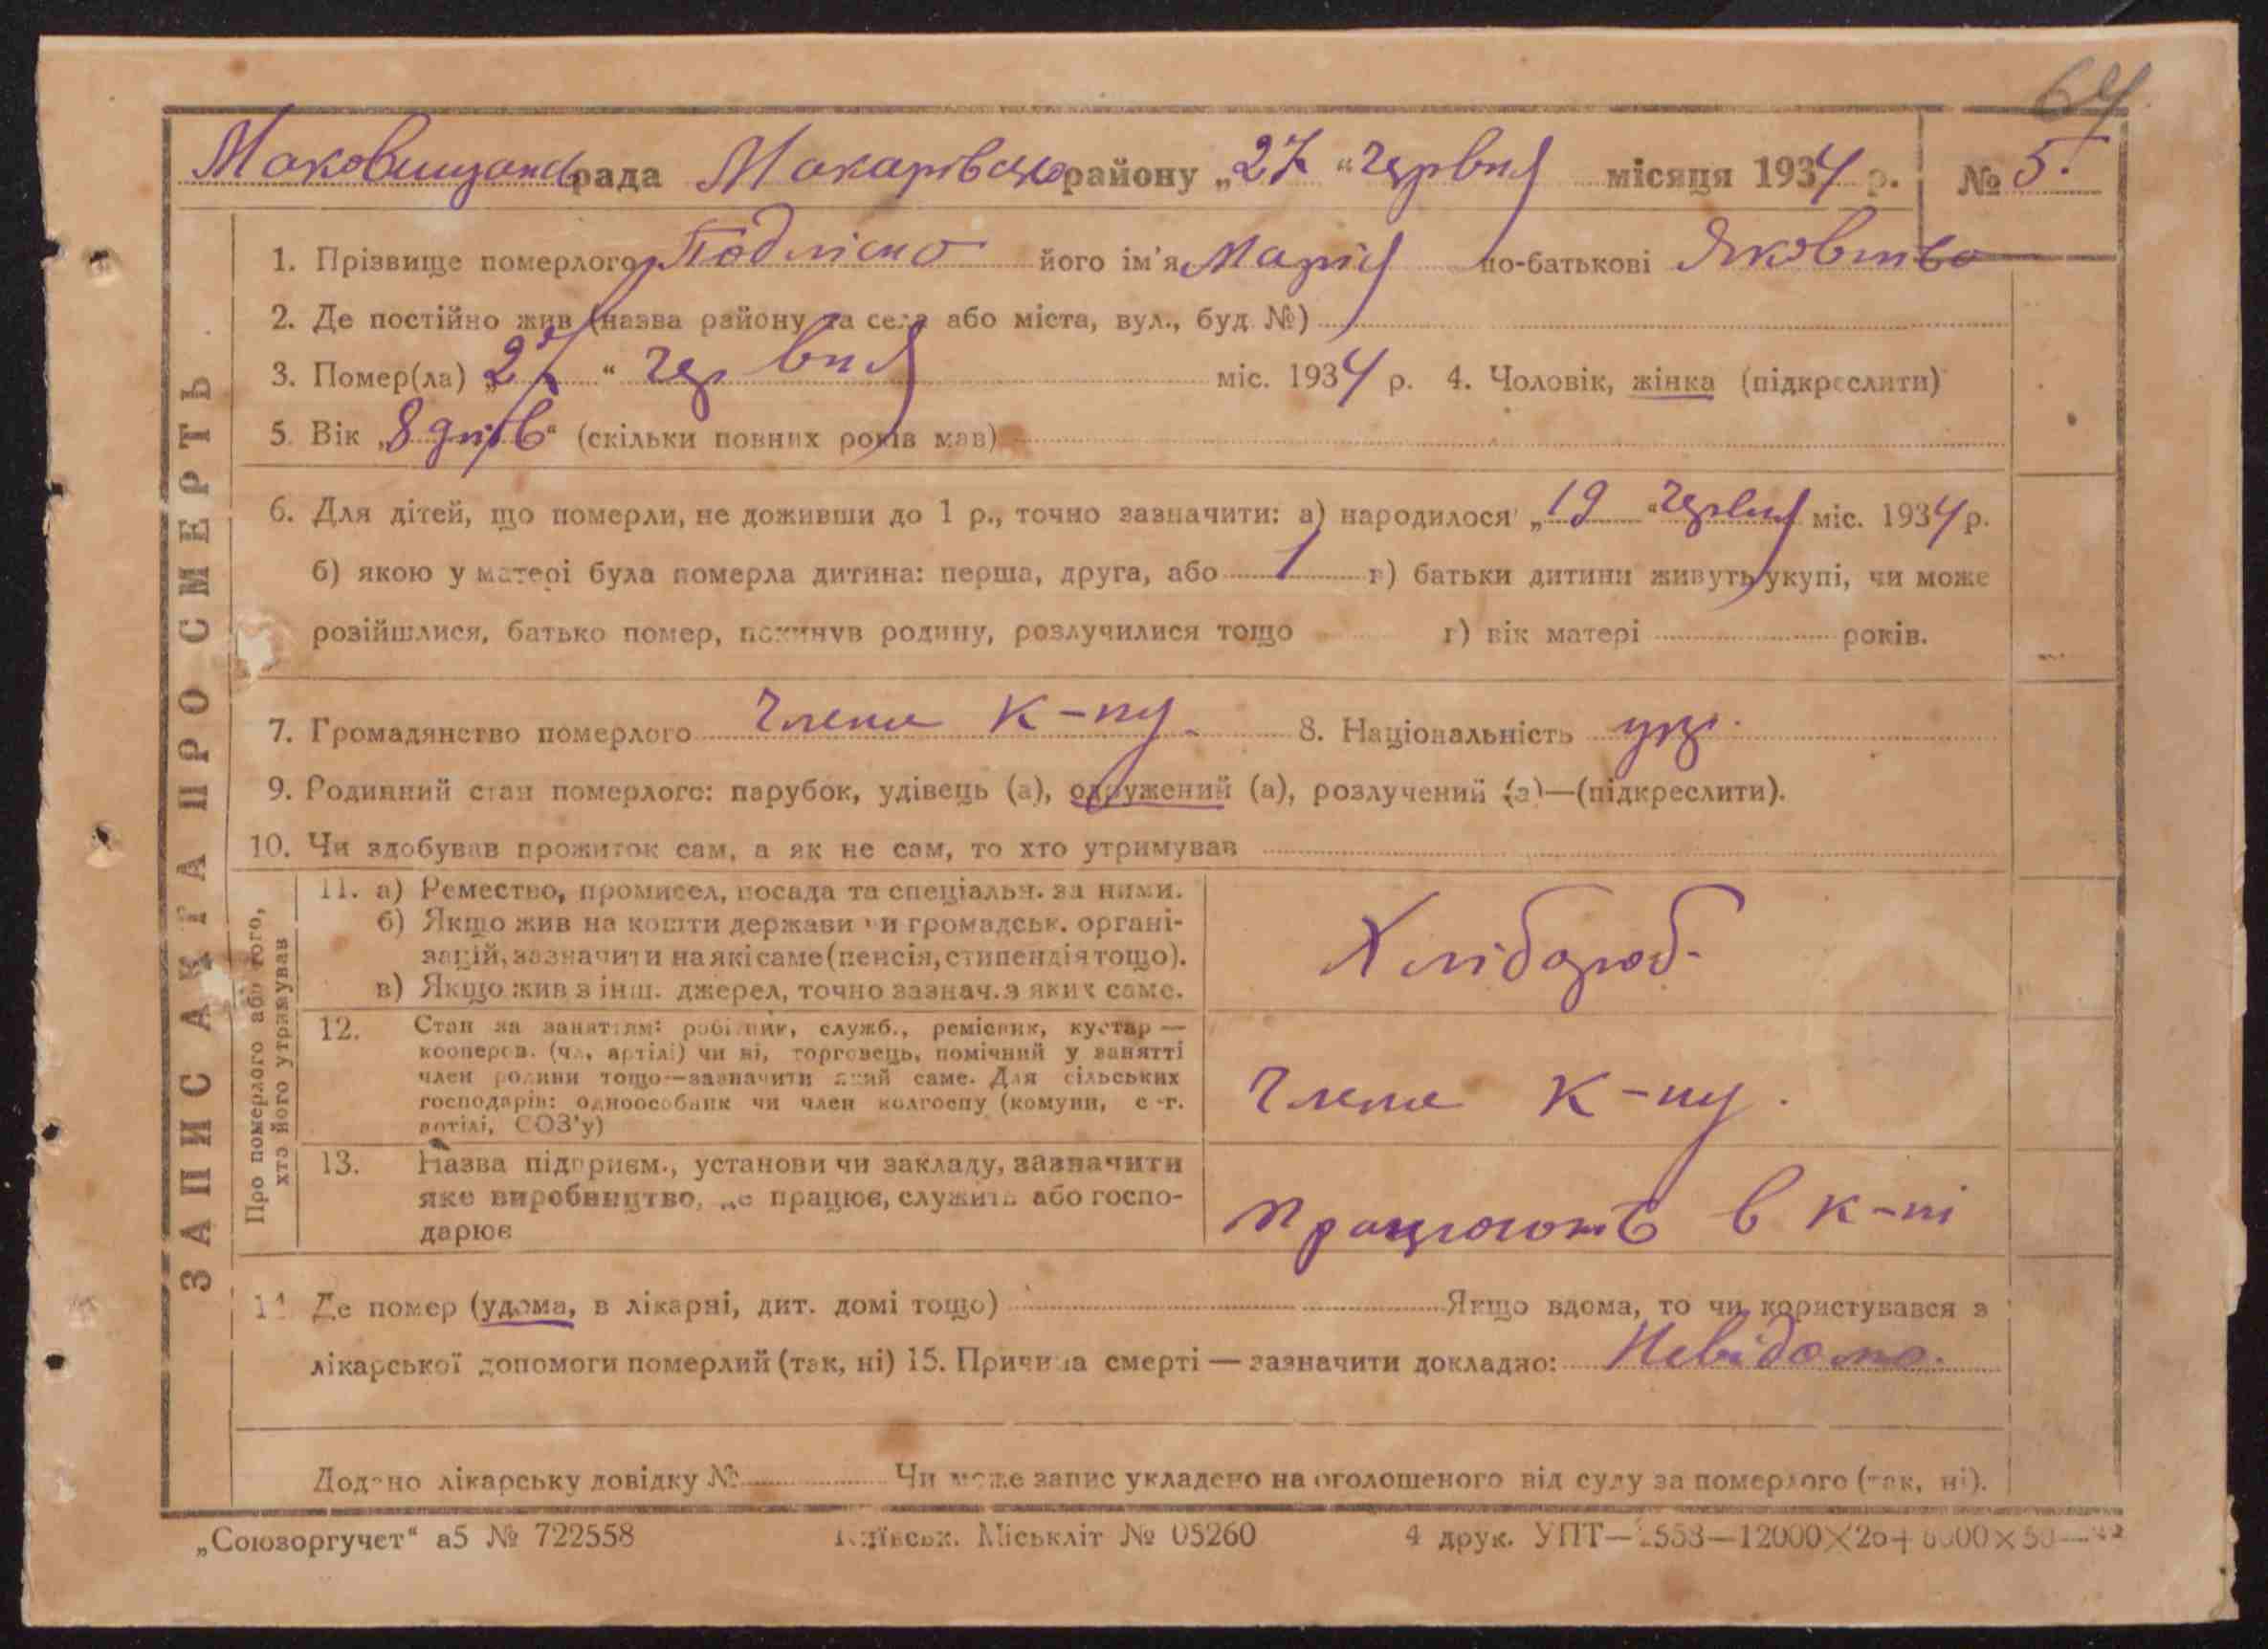 64
Маковищанс рада Макарівсько району „27“ червня місяця 1934 р. № 5.
1. Прізвище померлого Подлісна його ім'я Марія по-батькові Яковлівна
2. Де постійно жив (назва району та села або міста, вул., буд. №)
3. Помер(ла) „27“ червня міс. 1934 р. 4. Чоловік, жінка (підкреслити)
5. Вік „8 днів“ (скільки повних років мав)
6. Для дітей, що померли, не доживши до 1 р., точно зазначити: а) народилося „19“ червня міс. 1934 р.
б) якою у матері була померла дитина: перша, друга, або 1 в) батьки дитини живуть укупі, чи може
розійшлися, батько помер, покинув родину, розлучилися тощо г) вік матері років.
7. Громадянство померлого члени к-пу. 8. Національність укр.
9. Родинний стан померлого: парубок, удівець (а), одружений (а), розлучений (а)—(підкреслити).
10. Чи здобував прожиток сам, а як не сам, то хто утримував
ЗАПИС АКТА ПРО СМЕРТЬ
Про померлого або того,
хто його утримував
11. а) Ремество, промисел, посада та спеціальн. за ними.
б) Якщо жив на кошти держави чи громадськ. органі-
зацій, зазначити на які саме (пенсія, стипендія тощо).
в) Якщо жив з інш. джерел, точно зазнач. з яких саме.
Хлібороб.
12. Стан за заняттям: робітник, служб., ремісник, кустар —
кооперов. (чл. артілі) чи ні, торговець, помічний у занятті
член родини тощо—зазначити який саме. Для сільських
господарів: одноособник чи член колгоспу (комуни, с.-г.
артілі, СОЗ'у)
Члени к-пу.
13. Назва підприєм., установи чи закладу, зазначити
яке виробництво, де працює, служить або госпо-
дарює
працюють в к-пі
14 Де помер (удома, в лікарні, дит. домі тощо) Якщо вдома, то чи користувався з
лікарської допомоги померлий (так, ні) 15. Причина смерті — зазначити докладно: Невідома.
Додано лікарську довідку № Чи може запис укладено на оголошеного від суду за померлого (так, ні).
„Союзоргучет“ а5 № 722558 Київськ. Міськліт № 05260 4 друк. УПТ—